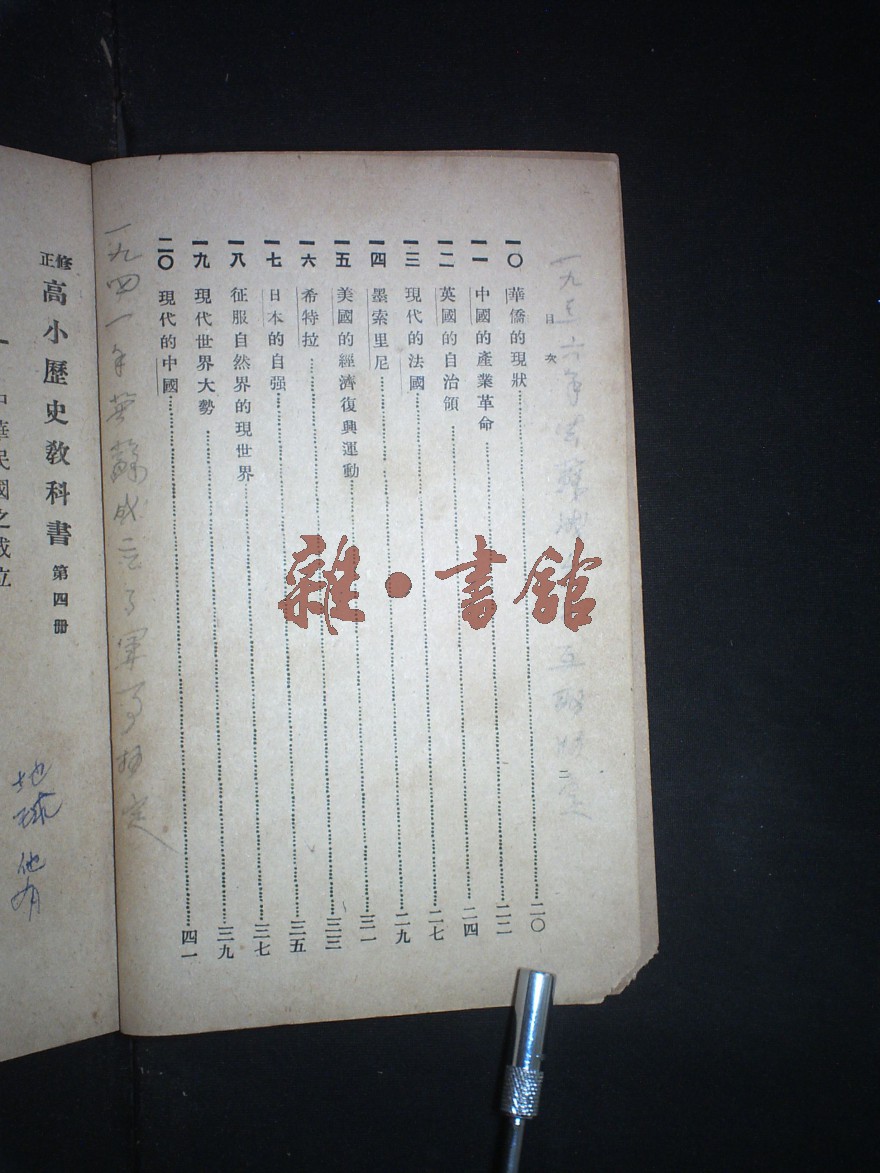 目次
二
一〇 華僑的現狀……二〇
一一 中國的產業革命……二二
一二 英國的自治領……二四
一三 現代的法國……二七
一四 墨索里尼……二九
一五 美國的經濟復興運動……三一
一六 希特拉……三三
一七 日本的自强……三五
一八 征服自然界的現世界……三七
一九 現代世界大勢……三九
二〇 現代的中國……四一
一九四一年英蘇成立了軍事協定
修正 高小歷史教科書 第四冊
中華民國之成立
地球
他有
雜·書館